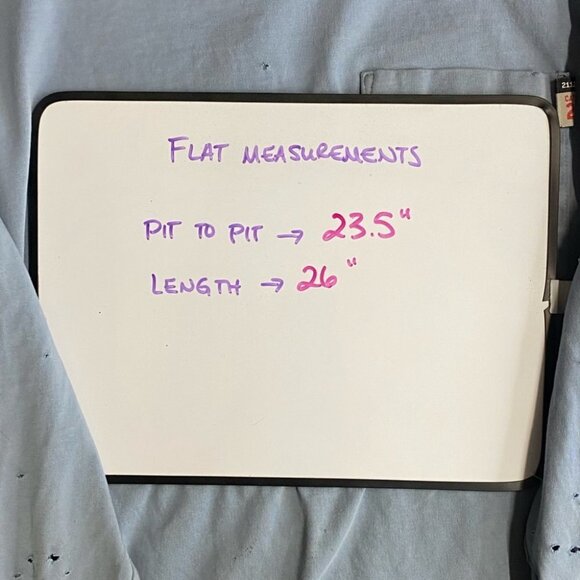 FLAT MEASUREMENTS
PIT TO PIT → 23.5"
LENGTH → 26"